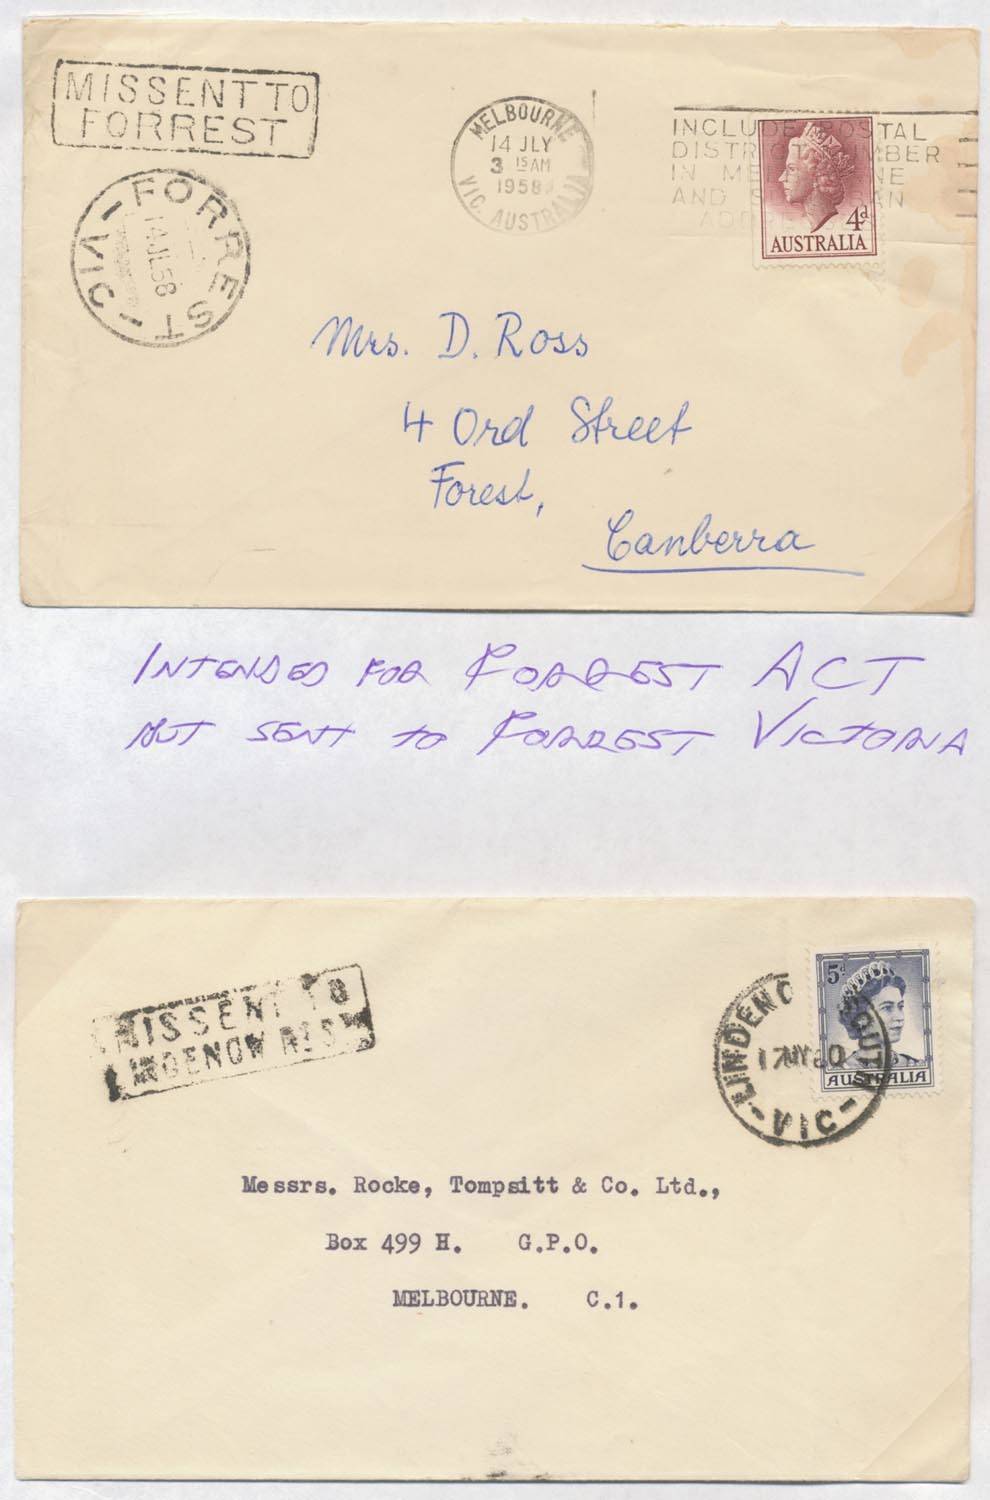 MISSENT TO
FORREST
MELBOURNE
14 JLY
3 15 AM
1958
VIC. AUSTRALIA
INCLUDE POSTAL
DISTRICT NUMBER
IN ME NE
AND S AN
4d
AUSTRALIA
FORREST
14 JL 58
VIC
Mrs. D. Ross
4 Ord Street
Forest,
Canberra
INTENDED FOR FORREST ACT
BUT SENT TO FORREST VICTORIA
MISSENT TO
5d
AUSTRALIA
LINDENO SOUTH
17 MY 60
VIC
Messrs. Rocke, Tompsitt & Co. Ltd.,
Box 499 H. G.P.O.
MELBOURNE. C.1.